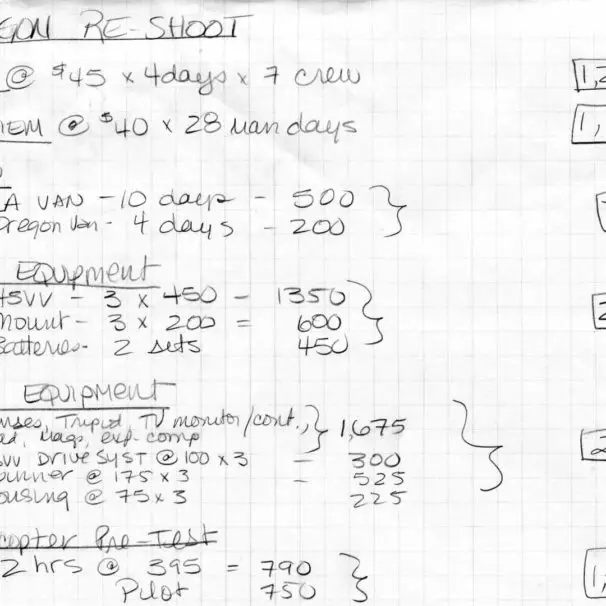 EGON RE-SHOOT
@ $45 x 4days x 7 crew [1,2
IEM @ $40 x 28 man days [1,
A VAN - 10 days - 500 }
Oregon Van - 4 days - 200
EQUIPMENT
HSVV - 3 x 450 - 1350 }
Mount - 3 x 200 = 600 [2
Batteries - 2 sets 450
EQUIPMENT
nses, Tripod, TV monitor/cont., } 1,675
ad, mags, exp. comp
SVV DRIVE SYST @ 100 x 3 = 300 [2
pinner @ 175 x 3 = 525
ousing @ 75 x 3 225
copter Pre-Test
2 hrs @ 395 = 790 }
Pilot 750 [1,